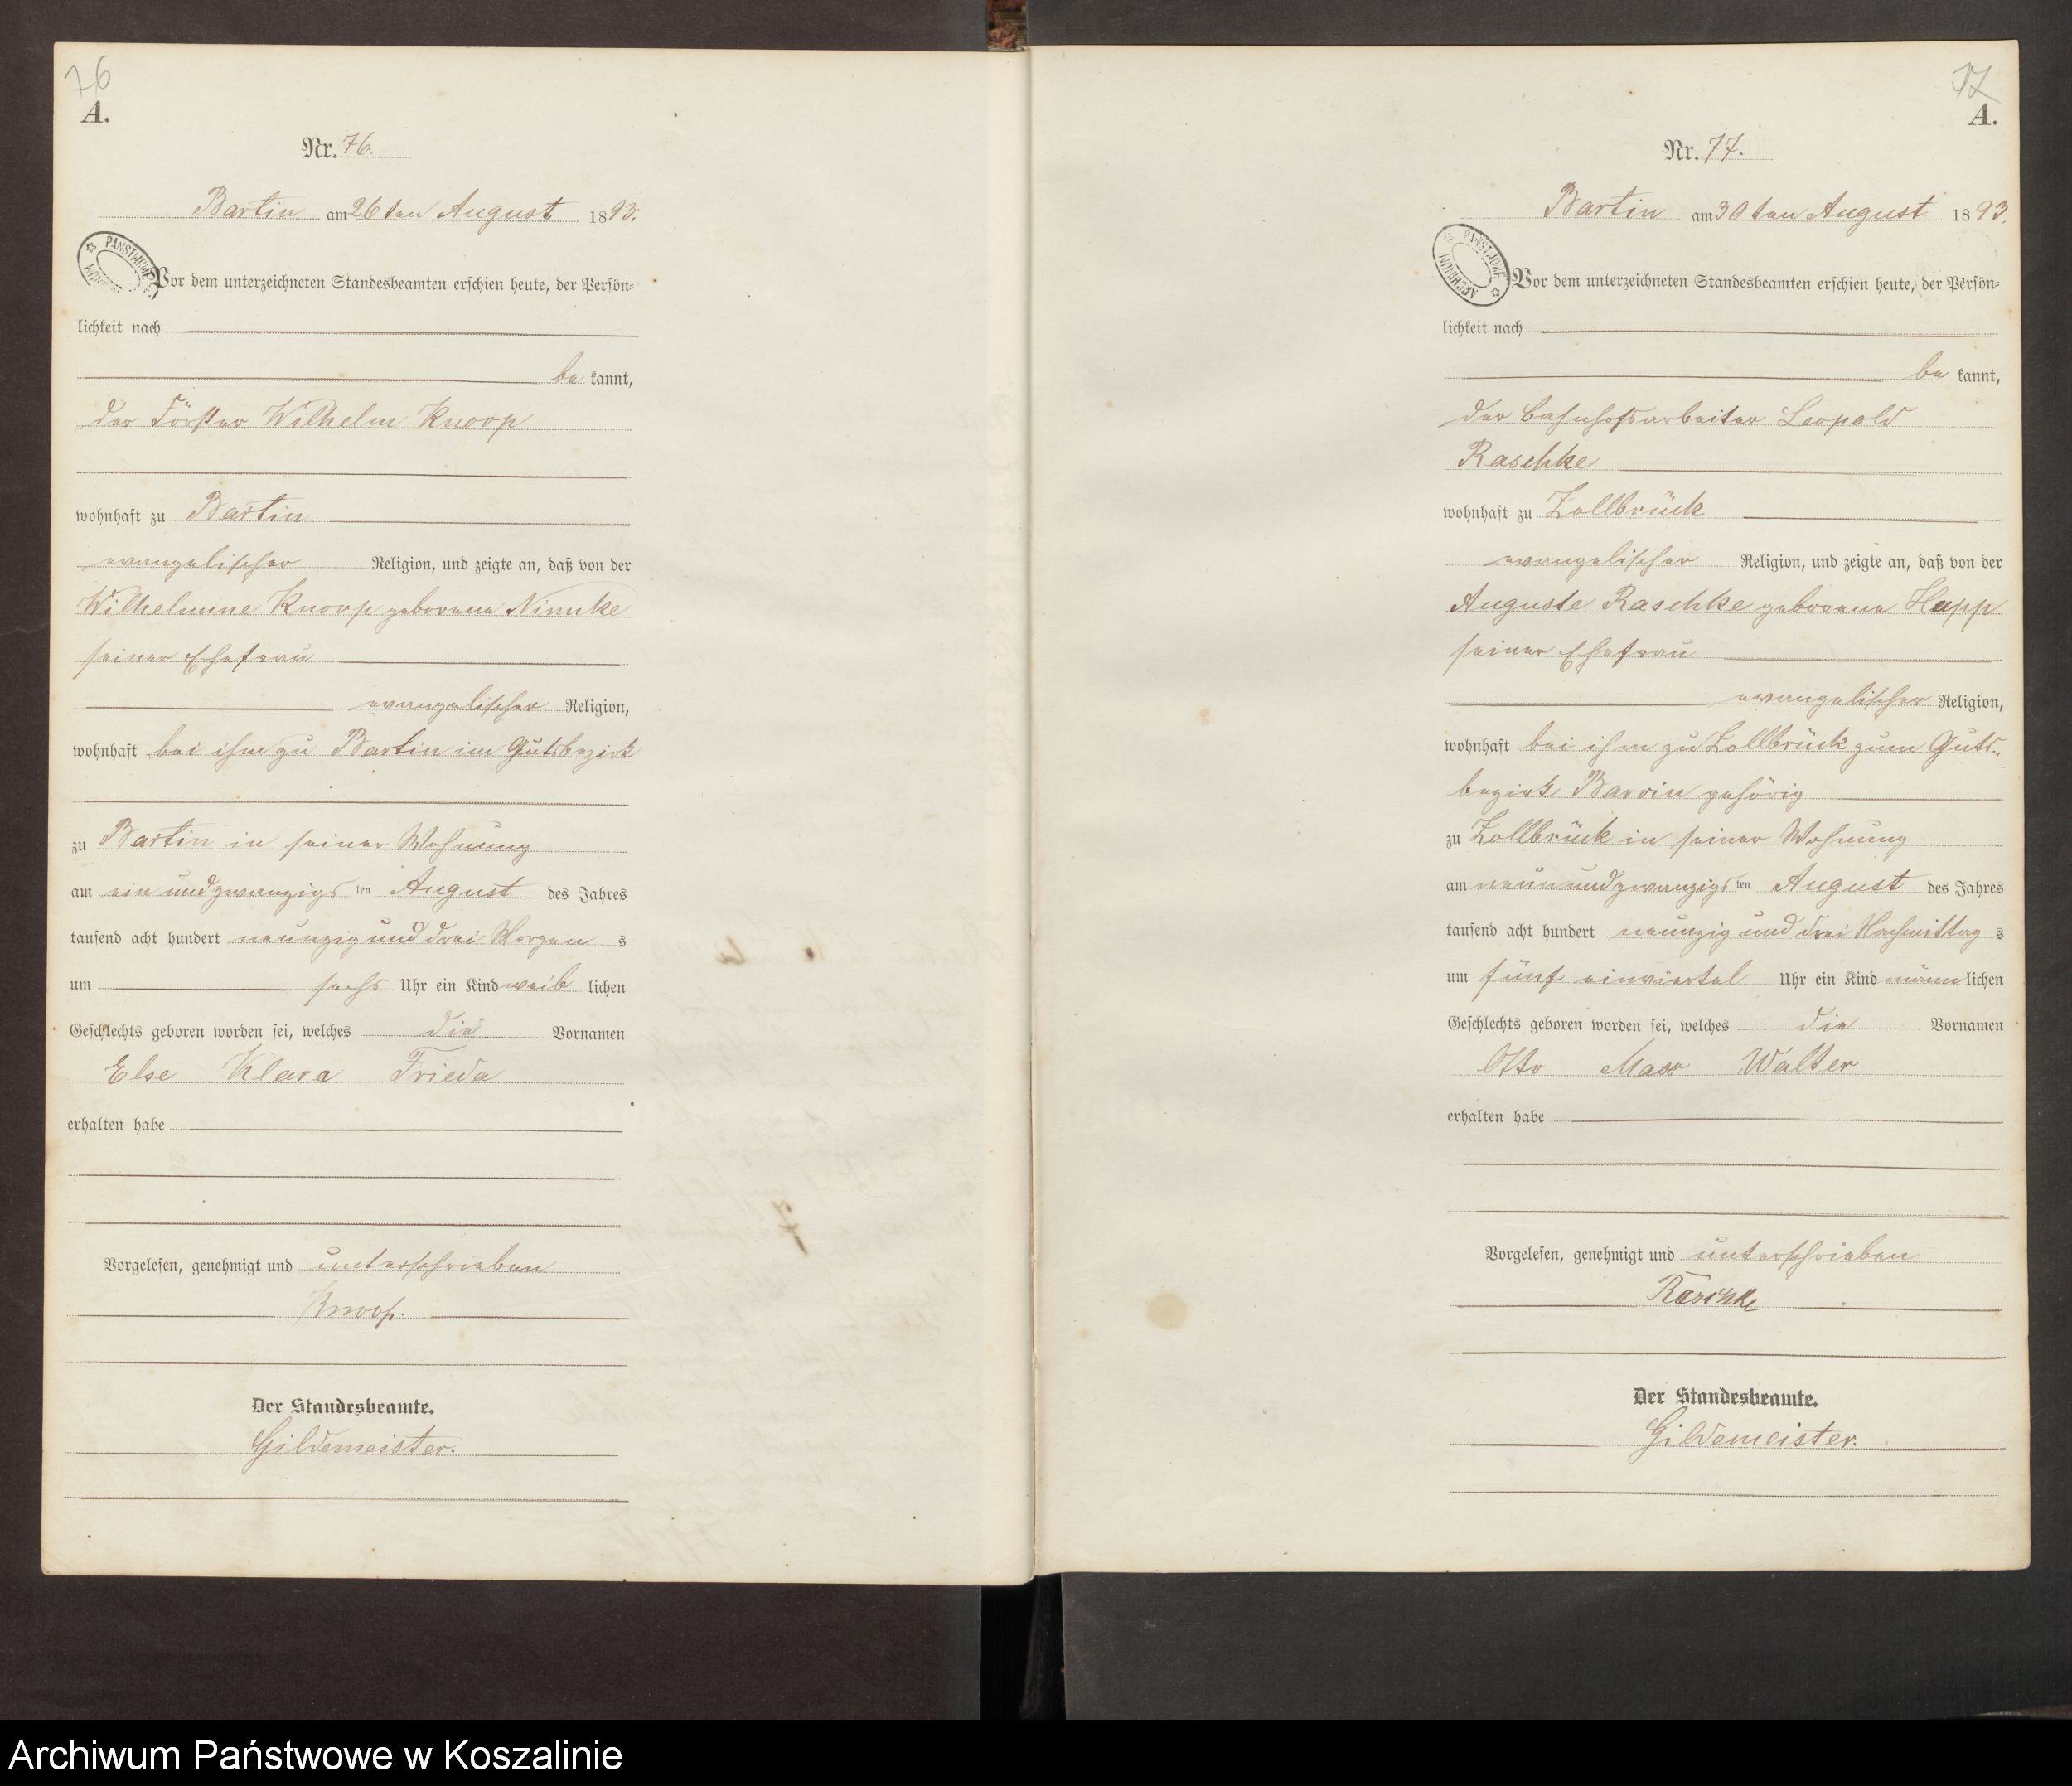 76
A.
Nr. 76.
Bartin am 26ten August 1893.
PAŃSTWOWE ARCHIWUM
Vor dem unterzeichneten Standesbeamten erschien heute, der Persön=
lichkeit nach
be kannt,
der Förster Wilhelm Knoop
wohnhaft zu Bartin
evangelischer Religion, und zeigte an, daß von der
Wilhelmine Knoop geborene Nimke
seiner Ehefrau
evangelischer Religion,
wohnhaft bei ihm zu Bartin im Gutsbezirk
zu Bartin in seiner Wohnung
am ein und zwanzigs ten August des Jahres
tausend acht hundert neunzig und drei Morgen s
um sechs Uhr ein Kind weib lichen
Geschlechts geboren worden sei, welches die Vornamen
Else Klara Frieda
erhalten habe
Vorgelesen, genehmigt und unterschrieben
Knoop.
Der Standesbeamte.
Gildemeister.
77
A.
Nr. 77.
Bartin am 30ten August 1893.
PAŃSTWOWE ARCHIWUM
Vor dem unterzeichneten Standesbeamten erschien heute, der Persön=
lichkeit nach
be kannt,
der Bahnhofsarbeiter Leopold
Raschke
wohnhaft zu Zollbrück
evangelischer Religion, und zeigte an, daß von der
Auguste Raschke geborene Happ
seiner Ehefrau
evangelischer Religion,
wohnhaft bei ihm zu Zollbrück zum Guts=
bezirk Barvin gehörig
zu Zollbrück in seiner Wohnung
am neun und zwanzigs ten August des Jahres
tausend acht hundert neunzig und drei Nachmittag s
um fünf einviertel Uhr ein Kind männ lichen
Geschlechts geboren worden sei, welches die Vornamen
Otto Max Walter
erhalten habe
Vorgelesen, genehmigt und unterschrieben
Raschke
Der Standesbeamte.
Gildemeister.
Archiwum Państwowe w Koszalinie